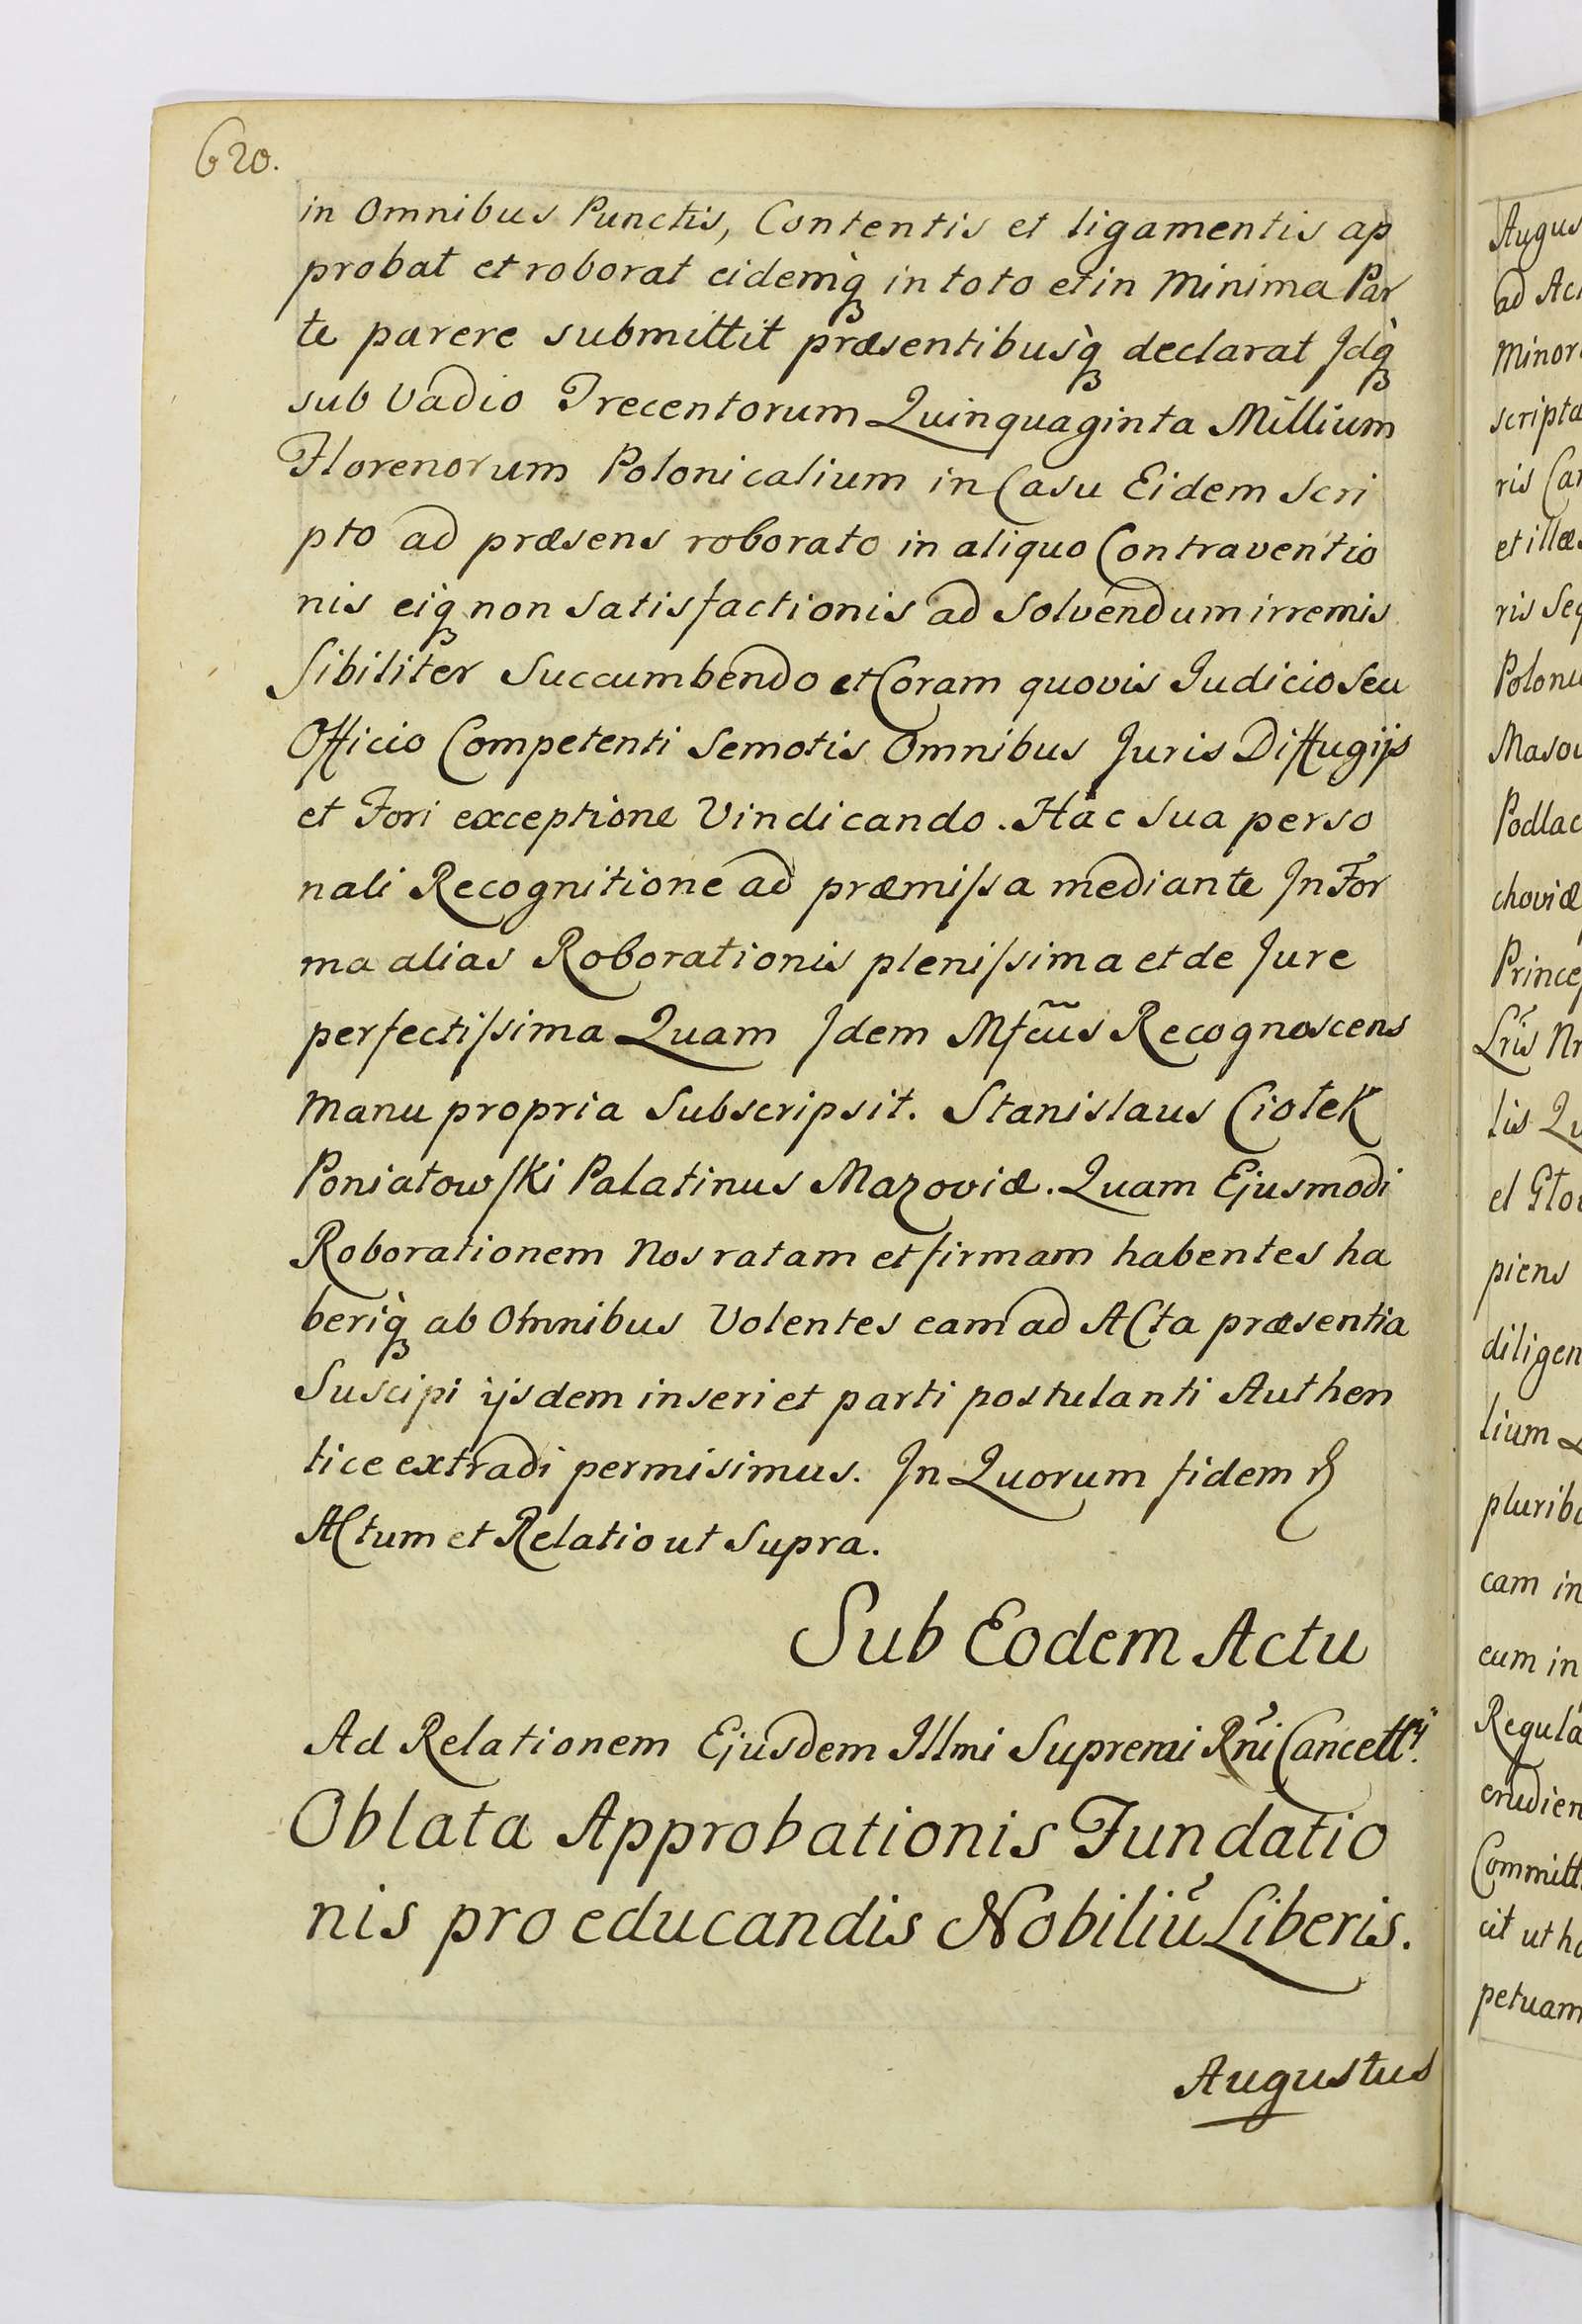 620.
in Omnibus Punctis, Contentis et ligamentis ap
probat et roborat eidemq̀ in toto et in Minima Par
te parere submittit præsentibusq̀ declarat Jdq̀
sub Vadio Trecentorum Quinquaginta Millium
Florenorum Polonicalium in Casu Eidem Scri
pto ad præsens roborato in aliquo Contraventio
nis eiq non Satisfactionis ad Solvendum irremis
sibiliter Succumbendo et Coram quovis Judicio Seu
Officio Competenti Semotis Omnibus Juris Diffugijs
et Fori exceptione Vindicando. Hac Sua perso
nali Recognitione ad præmiſsa mediante Jn For
ma alias Roborationis pleniſsima et de Jure
perfectiſsima Quam Jdem Mfcũs Recognoscens
Manu propria Subscripsit. Stanislaus Ciołek
Poniatowſki Palatinus Mazoviæ. Quam Ejusmodi
Roborationem Nos ratam et firmam habentes ha
beriq̀ ab Omnibus Volentes eam ad Acta præsentia
Suscipi ijsdem inseri et parti postulanti Authen
tice extradi permisimus. Jn Quorum fidem
Actum et Relatio ut Supra.
Sub Eodem Actu
Ad Relationem Ejusdem Jllmi Supremi Rñi Cancellrÿ.
Oblata Approbationis Fundatio
nis pro educandis Nobiliũ Liberis.
Augustus
Augus
ad Ac
Minor
scripta
ris Ca
et illæ
ris Seq
Polonu
Masov
Podlac
choviæ
Princep
Lris Nr
lis Qu
et Glo
piens
diligen
lium
pluribu
cam in
eum in
Regula
erudien
Committ
cit ut ho
petuam